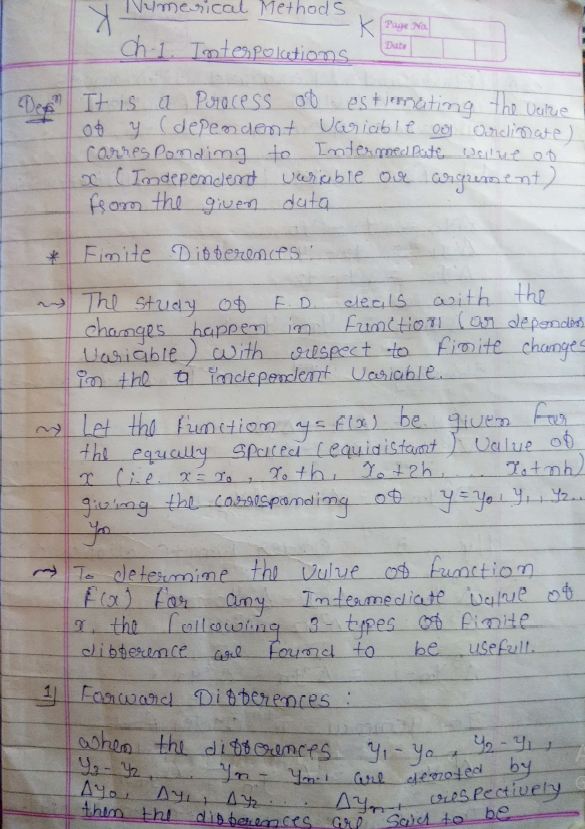 Numerical Methods
Page No.
Date
Ch-1. Interpolations
Defⁿ It is a Process of estimating the value
of y (dependent Variable or ordinate)
Corresponding to Intermediate value of
x (Independent variable or argument)
from the given data
* Finite Differences :
~> The study of F.D. deals with the
changes happen in Function (or dependent
Variable) with respect to finite changes
in the independent Variable.
~> Let the function y = f(x) be given for
the equally spaced (equidistant) value of
x (i.e. x = x₀, x₀+h, x₀+2h, ... x₀+nh)
giving the corresponding of y = y₀, y₁, y₂...
yₙ
~> To determine the value of function
f(x) for any Intermediate value of
x, the following 3-types of finite
difference are found to be usefull.
1) Forward Differences :
when the differences y₁-y₀, y₂-y₁,
y₃-y₂, ... yₙ-yₙ₋₁ are denoted by
Δy₀, Δy₁, Δy₂ ... Δyₙ₋₁ respectively
then the differences are said to be